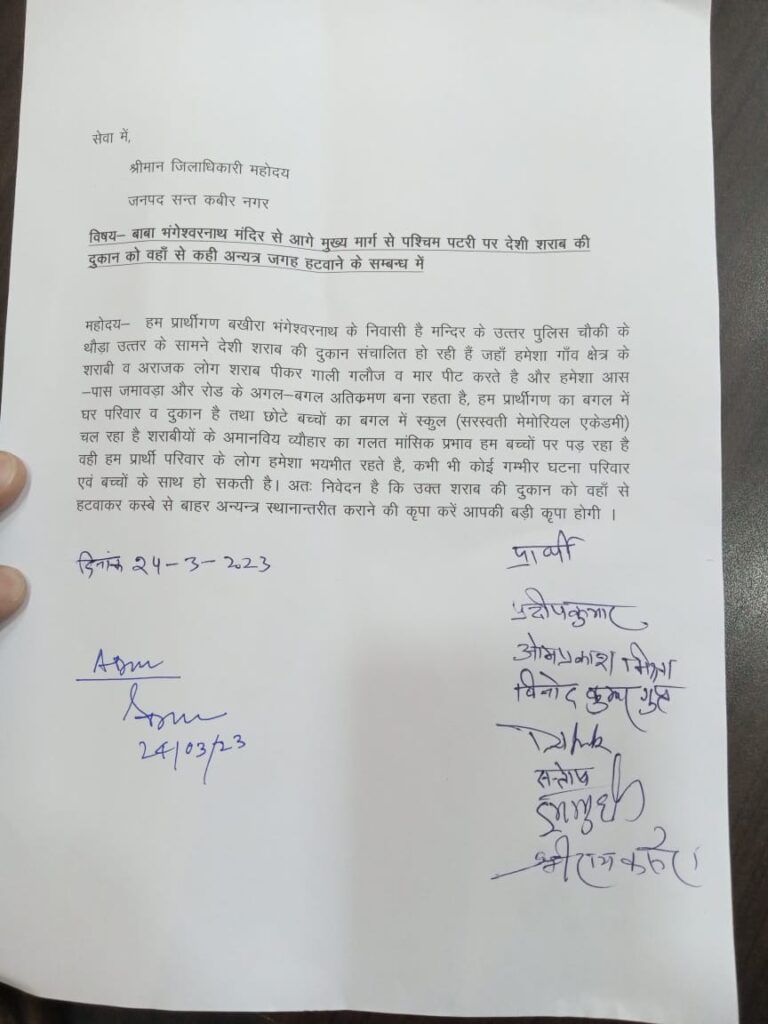 सेवा में,
श्रीमान जिलाधिकारी महोदय
जनपद सन्त कबीर नगर
विषय– बाबा भंगेश्वरनाथ मंदिर से आगे मुख्य मार्ग से पश्चिम पटरी पर देशी शराब की
दुकान को वहाँ से कही अन्यत्र जगह हटवाने के सम्बन्ध में
महोदय– हम प्रार्थीगण बखीरा भंगेश्वरनाथ के निवासी है मन्दिर के उत्तर पुलिस चौकी के
थौड़ा उत्तर के सामने देशी शराब की दुकान संचालित हो रही हैं जहाँ हमेशा गाँव क्षेत्र के
शराबी व अराजक लोग शराब पीकर गाली गलौज व मार पीट करते है और हमेशा आस
–पास जमावड़ा और रोड के अगल–बगल अतिक्रमण बना रहता है, हम प्रार्थीगण का बगल में
घर परिवार व दुकान है तथा छोटे बच्चों का बगल में स्कुल (सरस्वती मेमोरियल एकेडमी)
चल रहा है शराबीयों के अमानविय व्यौहार का गलत मांसिक प्रभाव हम बच्चों पर पड़ रहा है
वही हम प्रार्थी परिवार के लोग हमेशा भयभीत रहते है, कभी भी कोई गम्भीर घटना परिवार
एवं बच्चों के साथ हो सकती है। अतः निवेदन है कि उक्त शराब की दुकान को वहाँ से
हटवाकर कस्बे से बाहर अन्यन्त्र स्थानान्तरीत कराने की कृपा करें आपकी बड़ी कृपा होगी ।
दिनांक 24-3-2023
प्रार्थी
प्रदीपकुमार
ओमप्रकाश
विनोद कुमार गुप्त
सन्तोष
ADM
24/03/23